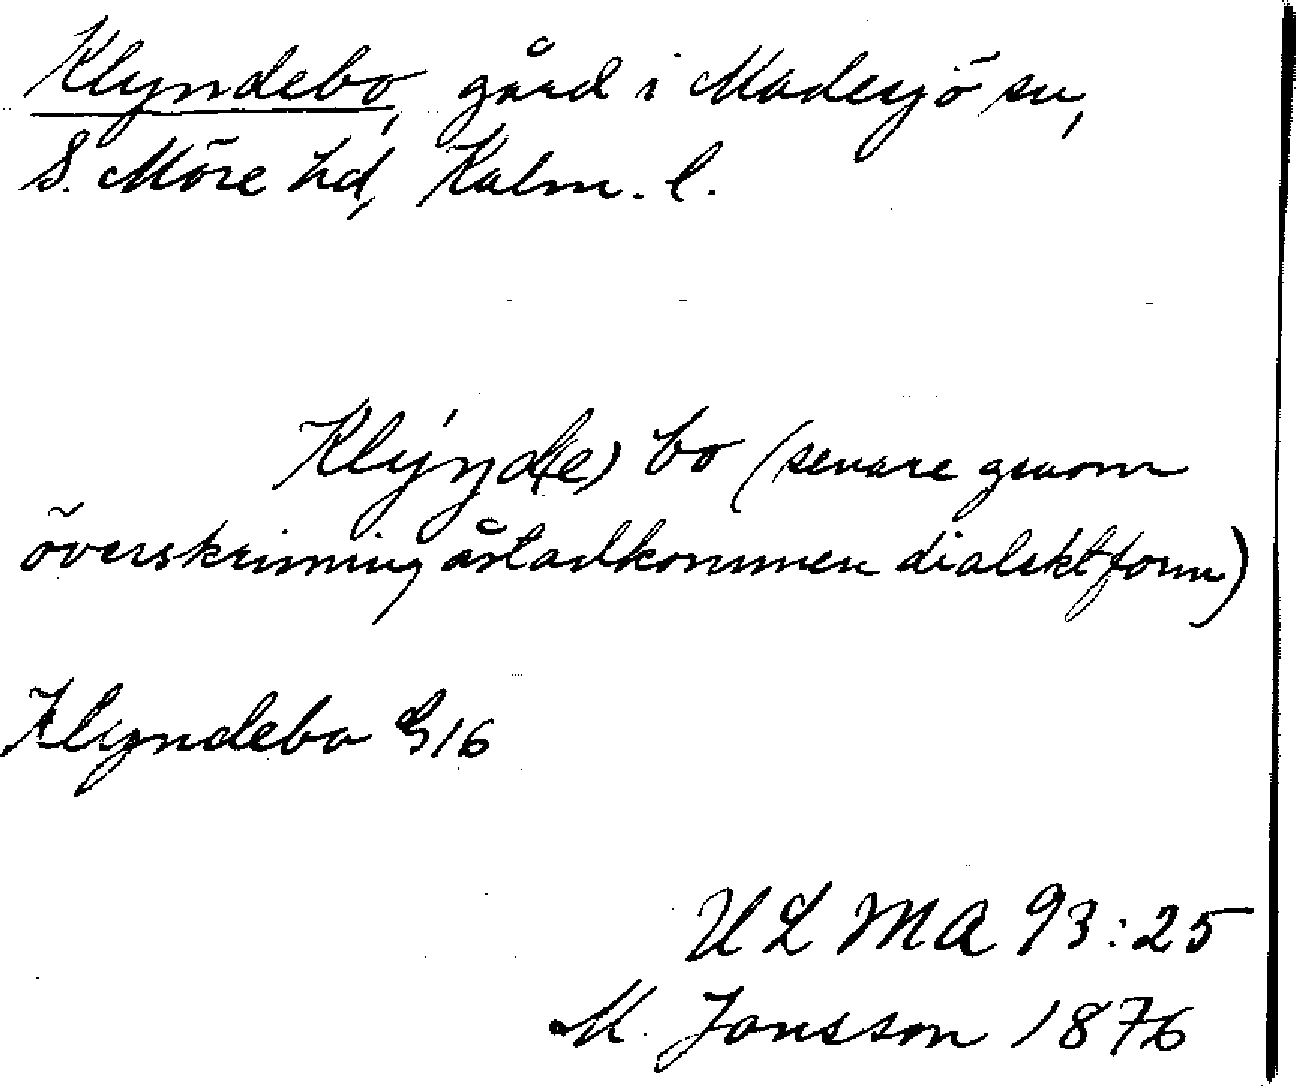 Klyndebo, gård i Madesjö sn,
S. Möre hd, Kalm. l.
Klýnd(e) bo (senare genom
överskrivning åstadkommen dialektform)
Klyndebo 316
ULMA 93:25
M. Jonsson 1876